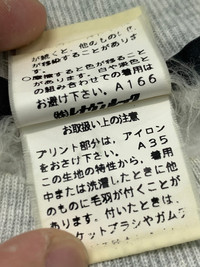 が続くと、他のものに
が移染することがありま
す。
○摩擦すると色が移ること
があります。白や淡色と
の組み合わせでの着用は
お避け下さい。A166
㈱レナウンルック
お取扱い上の注意
プリント部分は、アイロン
をおさけ下さい。A35
この生地の特性から、着用
中または洗濯したときに他
のものに毛羽が付くことが
あります。付いたときは、
ケットブラシやガムテ